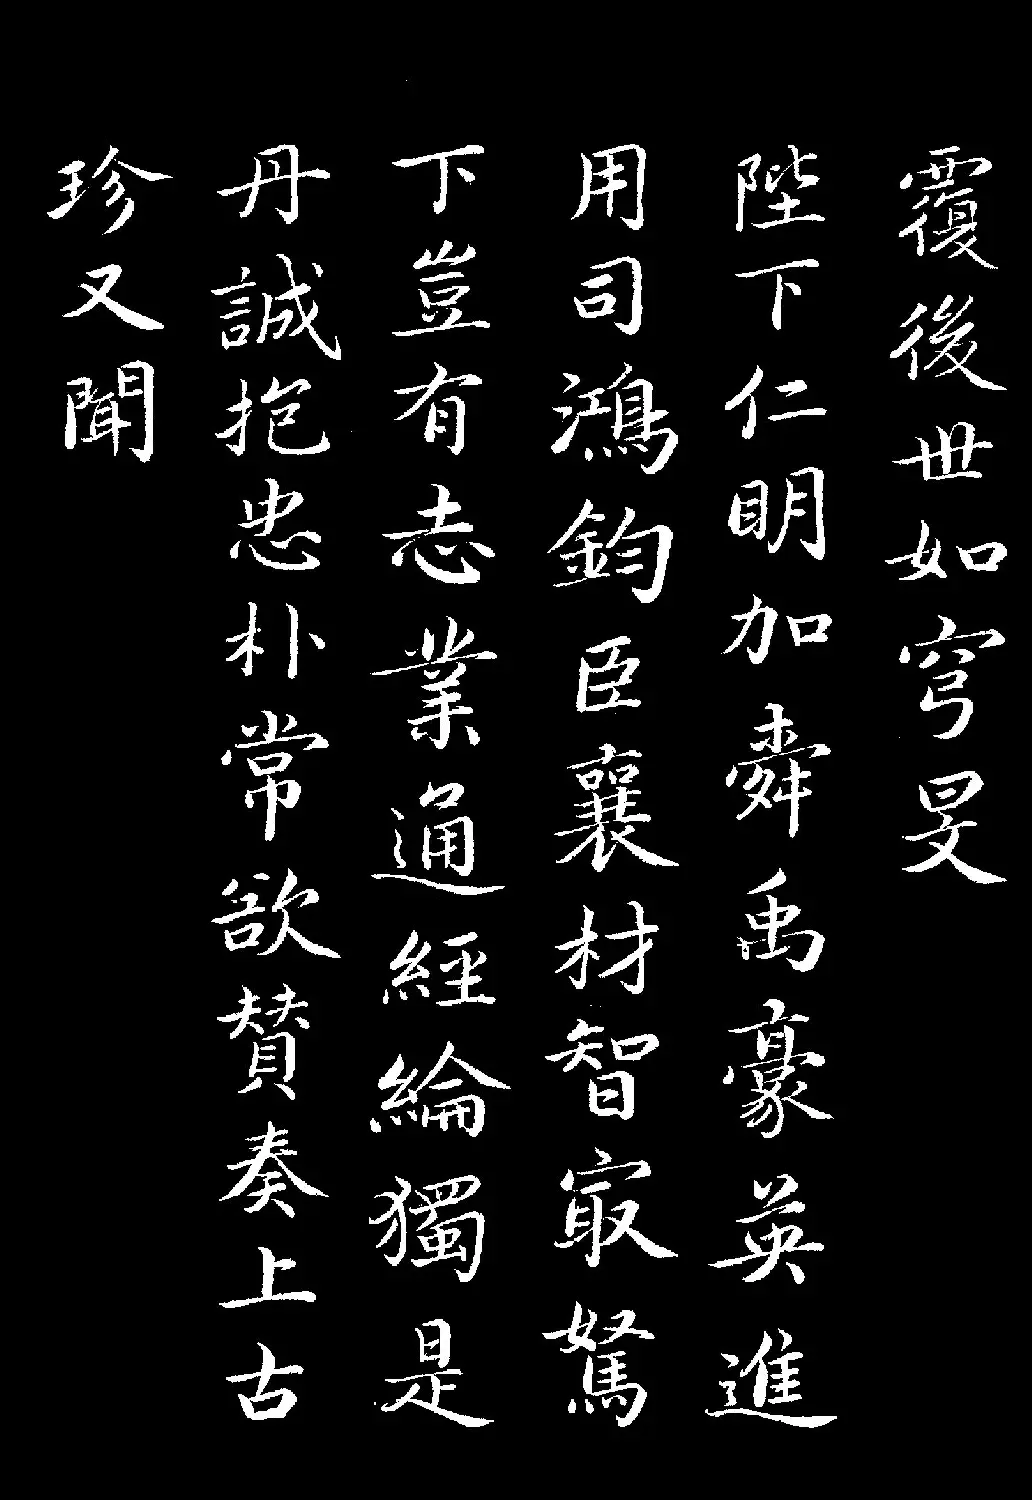 覆後世如穹旻
陛下仁明加舜禹豪英進
用司鴻鈞臣襄材智冣駑
下豈有志業通經綸獨是
丹誠抱忠朴常欲賛奏上古
珍又聞